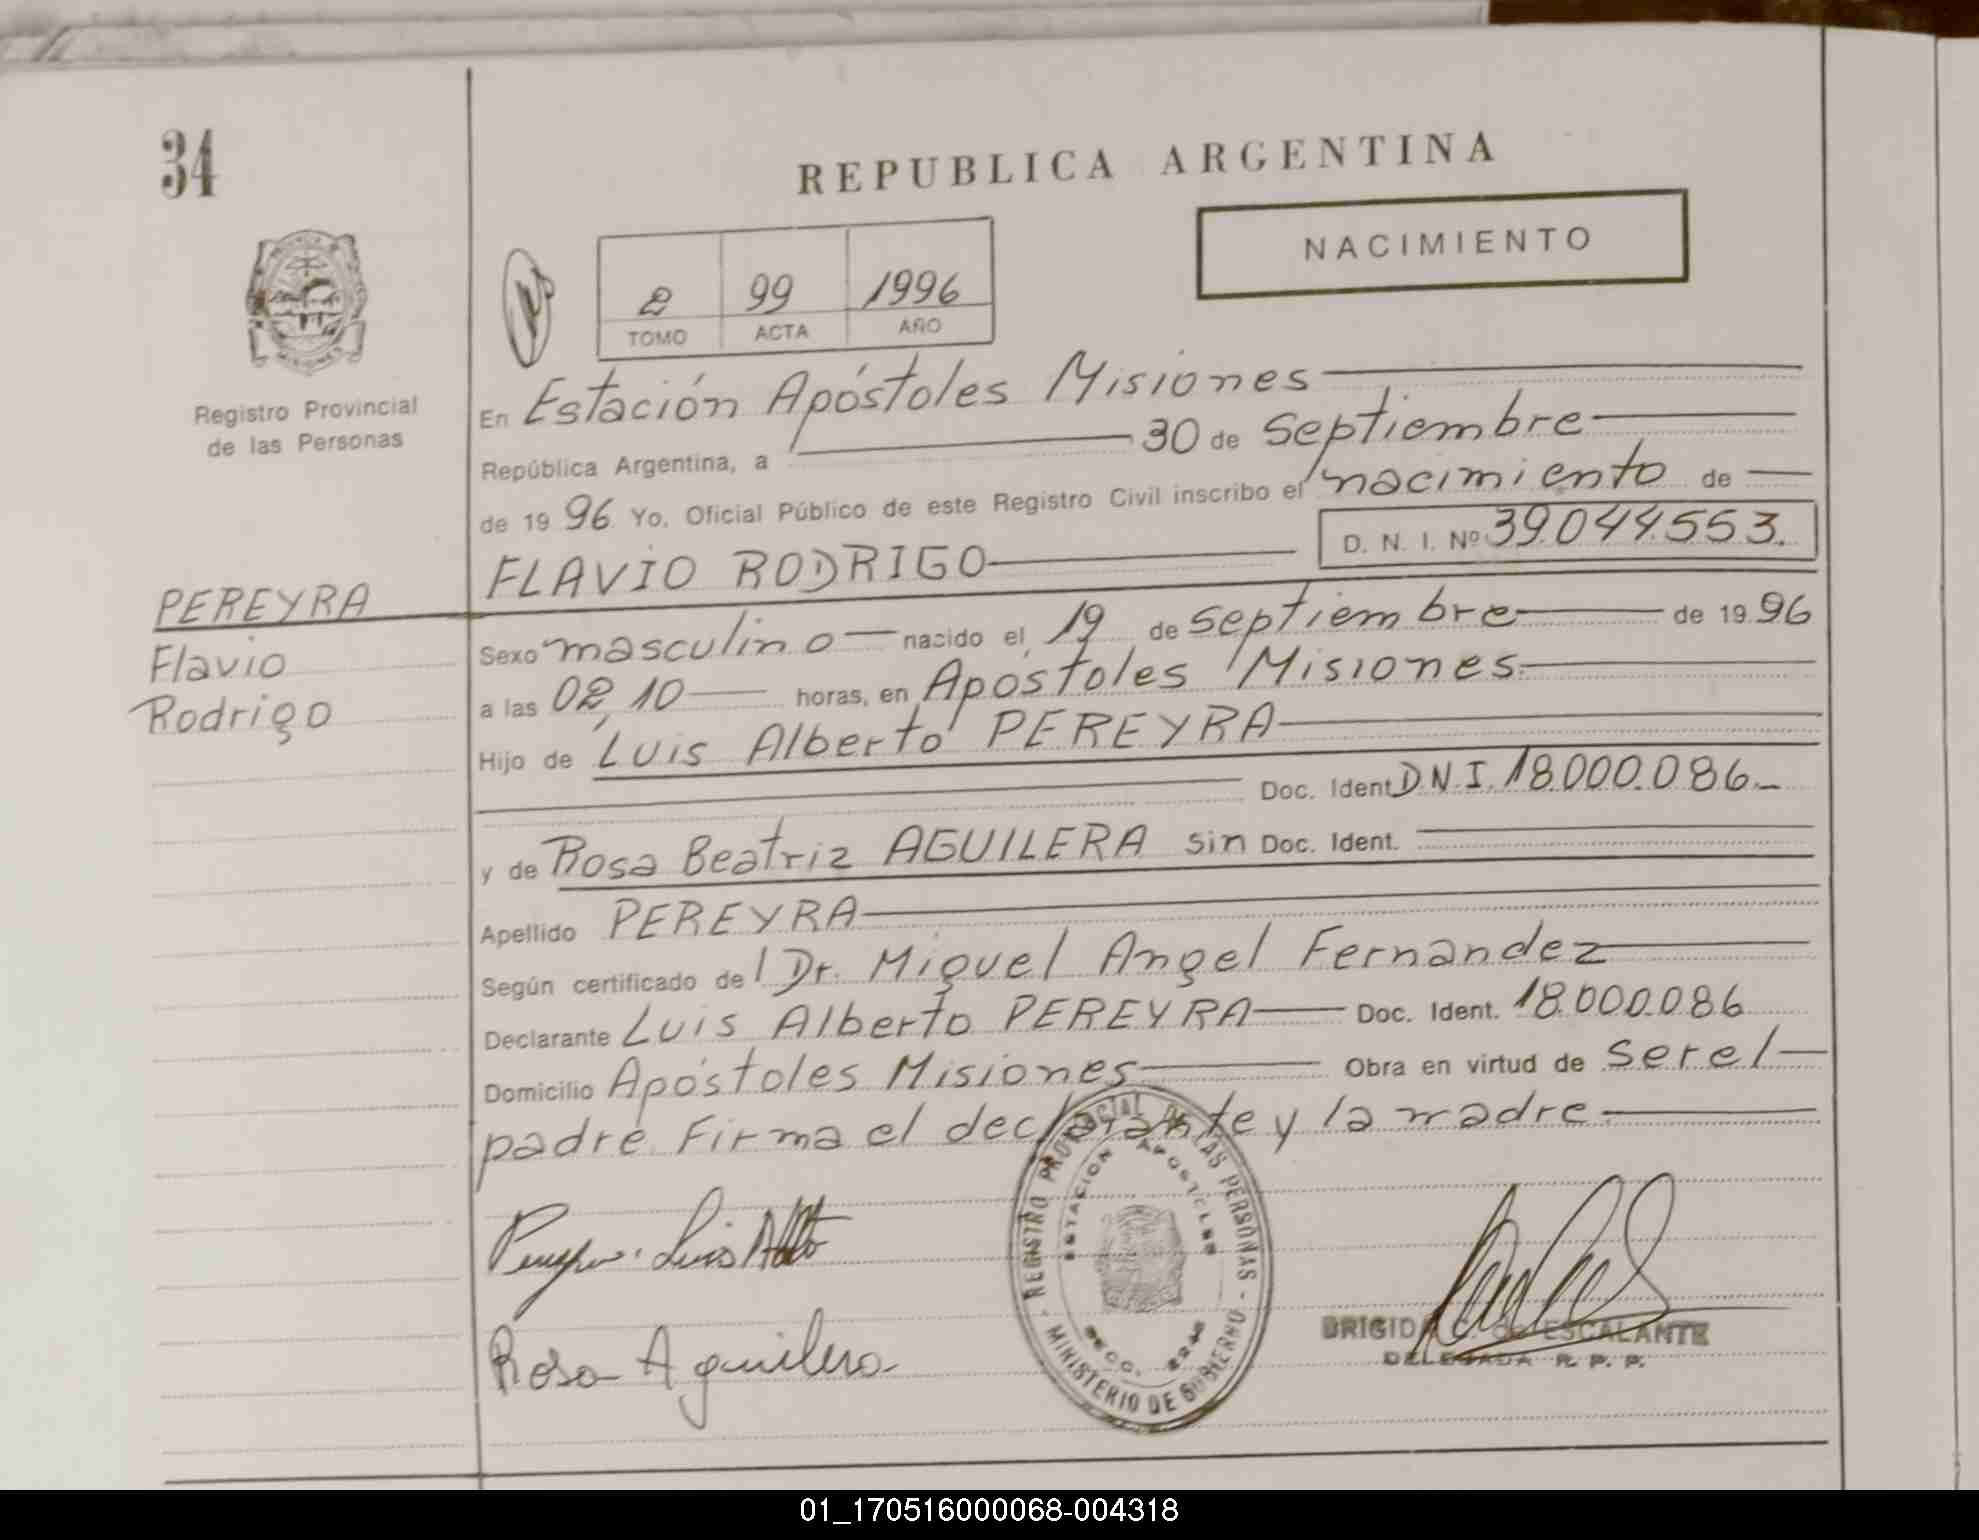 34
REPUBLICA ARGENTINA
NACIMIENTO
2 99 1996
TOMO ACTA AÑO
MISIONES
Registro Provincial
de las Personas
En Estación Apóstoles Misiones
República Argentina, a 30 de Septiembre
de 1996 Yo, Oficial Público de este Registro Civil inscribo el nacimiento de
FLAVIO RODRIGO D. N. I. Nº 39.044.553.
PEREYRA
Flavio
Rodrigo
Sexo masculino nacido el 19 de septiembre de 1996
a las 02,10 horas, en Apóstoles Misiones
Hijo de Luis Alberto PEREYRA
Doc. Ident D.N.I. 18.000.086
y de Rosa Beatriz AGUILERA sin Doc. Ident.
Apellido PEREYRA
Según certificado del Dr. Miguel Angel Fernandez
Declarante Luis Alberto PEREYRA Doc. Ident. 18.000.086
Domicilio Apóstoles Misiones Obra en virtud de ser el
padre. Firma el declarante y la madre.
Luis Alberto
Rosa Aguilera
REGISTRO PROVINCIAL DE LAS PERSONAS
MINISTERIO DE GOBIERNO
ESTACION APOSTOLES
SECC.
BRIGIDA C. de ESCALANTE
DELEGADA R. P. P.
01_170516000068-004318